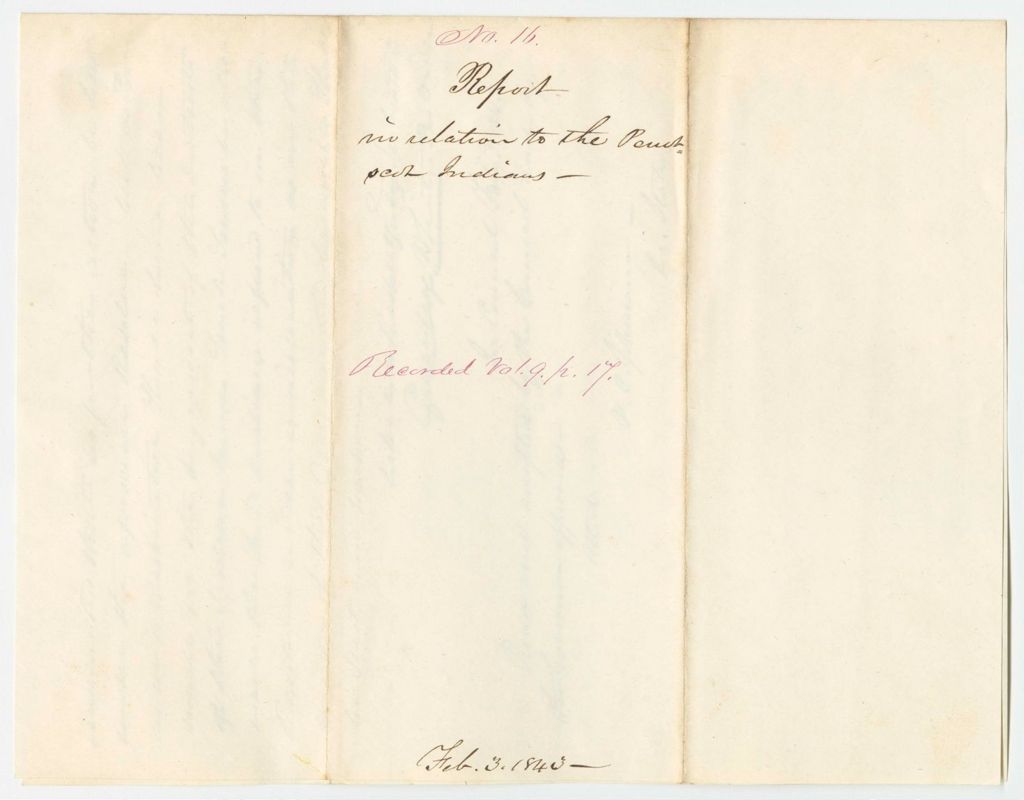 No. 16.
Report
in relation to the Penob=
scot Indians —
Recorded Vol. 9. p. 17.
Feb. 3. 1843 —